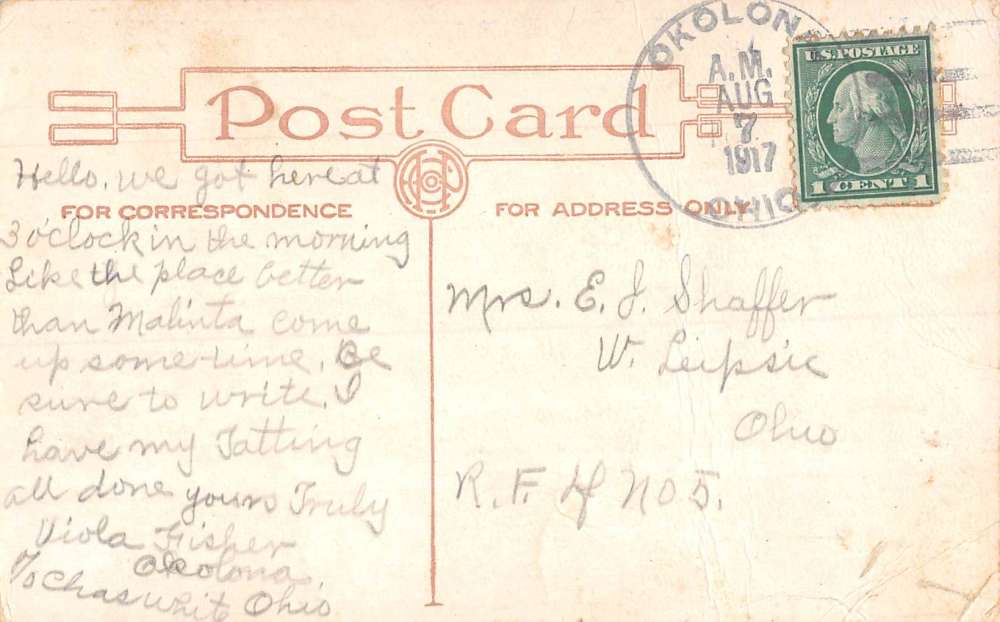 Post Card
OKOLONA
A.M.
AUG
7
1917
OHIO
U.S. POSTAGE
1 CENT 1
FOR CORRESPONDENCE
FOR ADDRESS ONLY
Hello, we got here at
3 o'clock in the morning
Like the place better
than Malinta come
up some-time. Be
sure to write. I
have my Tatting
all done yours Truly
Viola Fisher
Okolona,
c/o Chas White Ohio
Mrs. E. J. Shaffer
W. Leipsic
Ohio
R. F. D No 5.